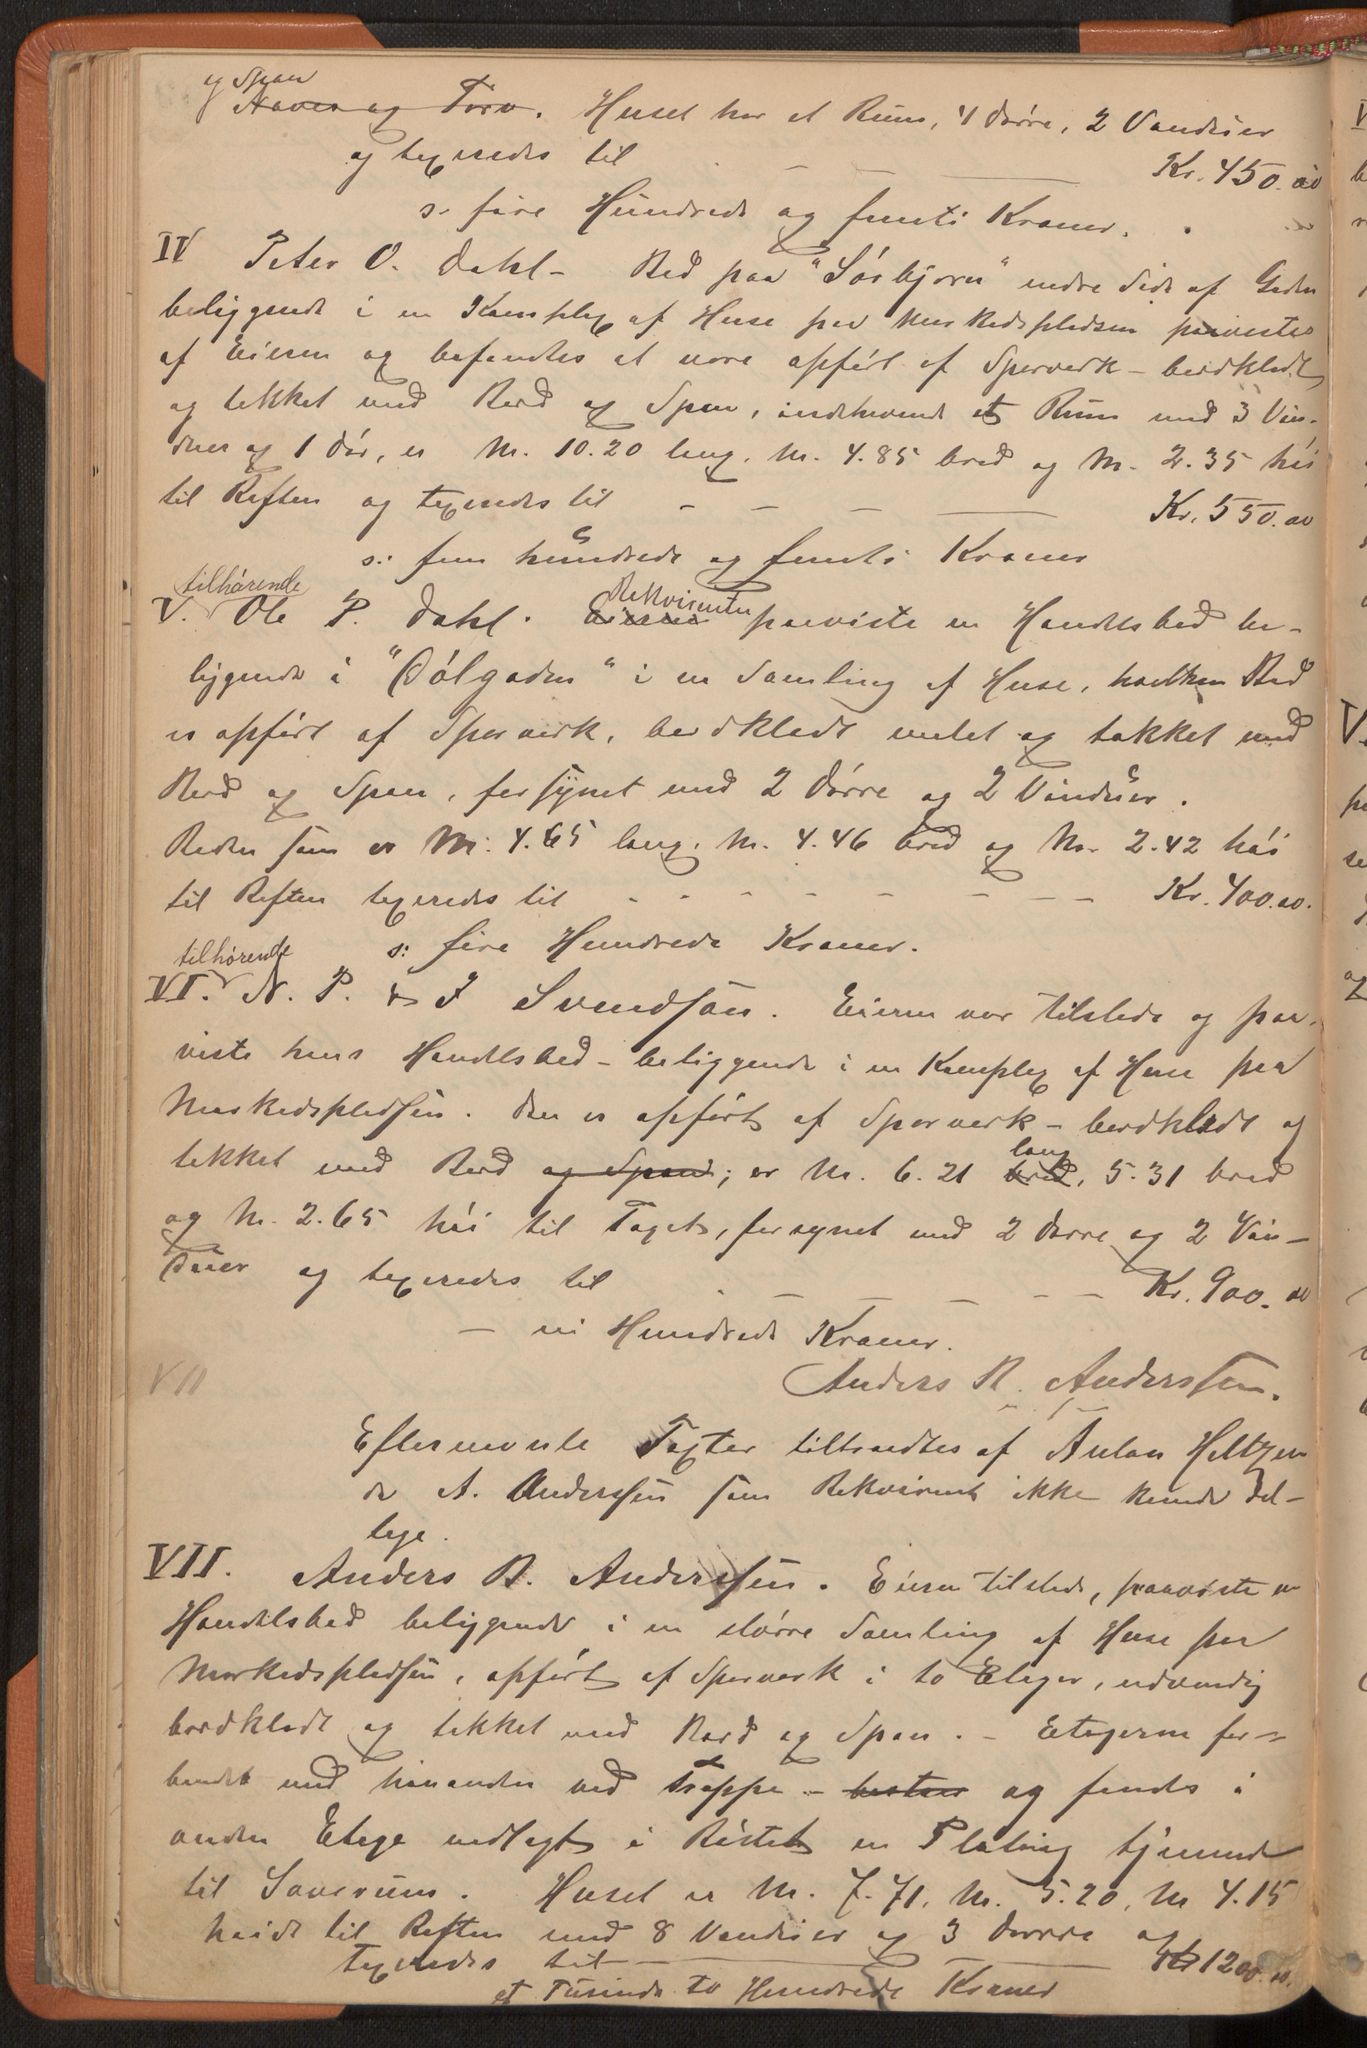 og Span
Naver og Torv. Huset har et Rum, 4 Dørre, 2 Vinduer
og taxeredes til - - Kr. 450.00
s: fire Hundrede og femti Kroner.
IV Peter O. Dahl - Bod paa "Sørbjørn" nedre Side af Gaden
beliggende i en Komplex af Huse paa Markedspladsen paavistes
af Eieren og befandtes at være opført af Sperverk - bordklædt
og tækket med Bord og Spon, indehavende et Rum med 3 Vin-
duer og 1 Dør, er M. 10.20 lang, M. 4.85 bred og M. 2.35 høi
til Røften og taxeredes til - - - Kr. 550.00
s: fem hundrede og femti Kroner
tilhørende Rekvirenten
V. Ole P. Dahl. Eieren paaviste en Handelsbod be-
liggende i "Dølgaden" i en Samling af Huse, hvilken Bod
er opført af Sperverk, bordklædt malet og tækket med
Bord og Spon, forsynet med 2 Dørre og 2 Vinduer.
Boden som er M. 4.65 lang, M. 4.46 bred og M. 2.42 høi
til Røften taxeredes til - - - - - - - Kr. 400.00.
s: fire Hundrede Kroner.
tilhørende
VI. N. P. & J Svendsen. Eieren var tilstede og paa-
viste hans Handelsbod - beliggende i en Komplex af Huse paa
Markedspladsen. Den er opført af Sperverk - bordklædt og
tækket med Bord og Spon; er M. 6.21 bred, lang 5.31 bred
og M. 2.65 høi til Taget, forsynet med 2 Dørre og 2 Vin-
duer og taxeredes til - - - - - - Kr. 900.00
- ni Hundrede Kroner.
VII Anders B. Anderssen.
Efternævnte Taxter tiltraadtes af Anton Heltzen
da A. Anderssen som Rekvirent ikke kunde del-
tage.
VII. Anders B. Anderssen. Eieren tilstede, paaviste en
Handelsbod beliggende i en større Samling af Huse paa
Markedspladsen, opført af Sperverk i to Etager, udvendig
bordklædt og tækket med Bord og Spon. - Etagerne for-
bundet med hinanden ved Trappe - og fandtes i
anden Etage nedlagt i Røstet en Platning tjenende
til Soverum. Huset er M. 7.71, M. 5.20, M 4.15
høide til Røften med 8 Vinduer og 3 Dørre og
taxeredes til - Kr 1200.00.
et Tusinde to Hundrede Kroner